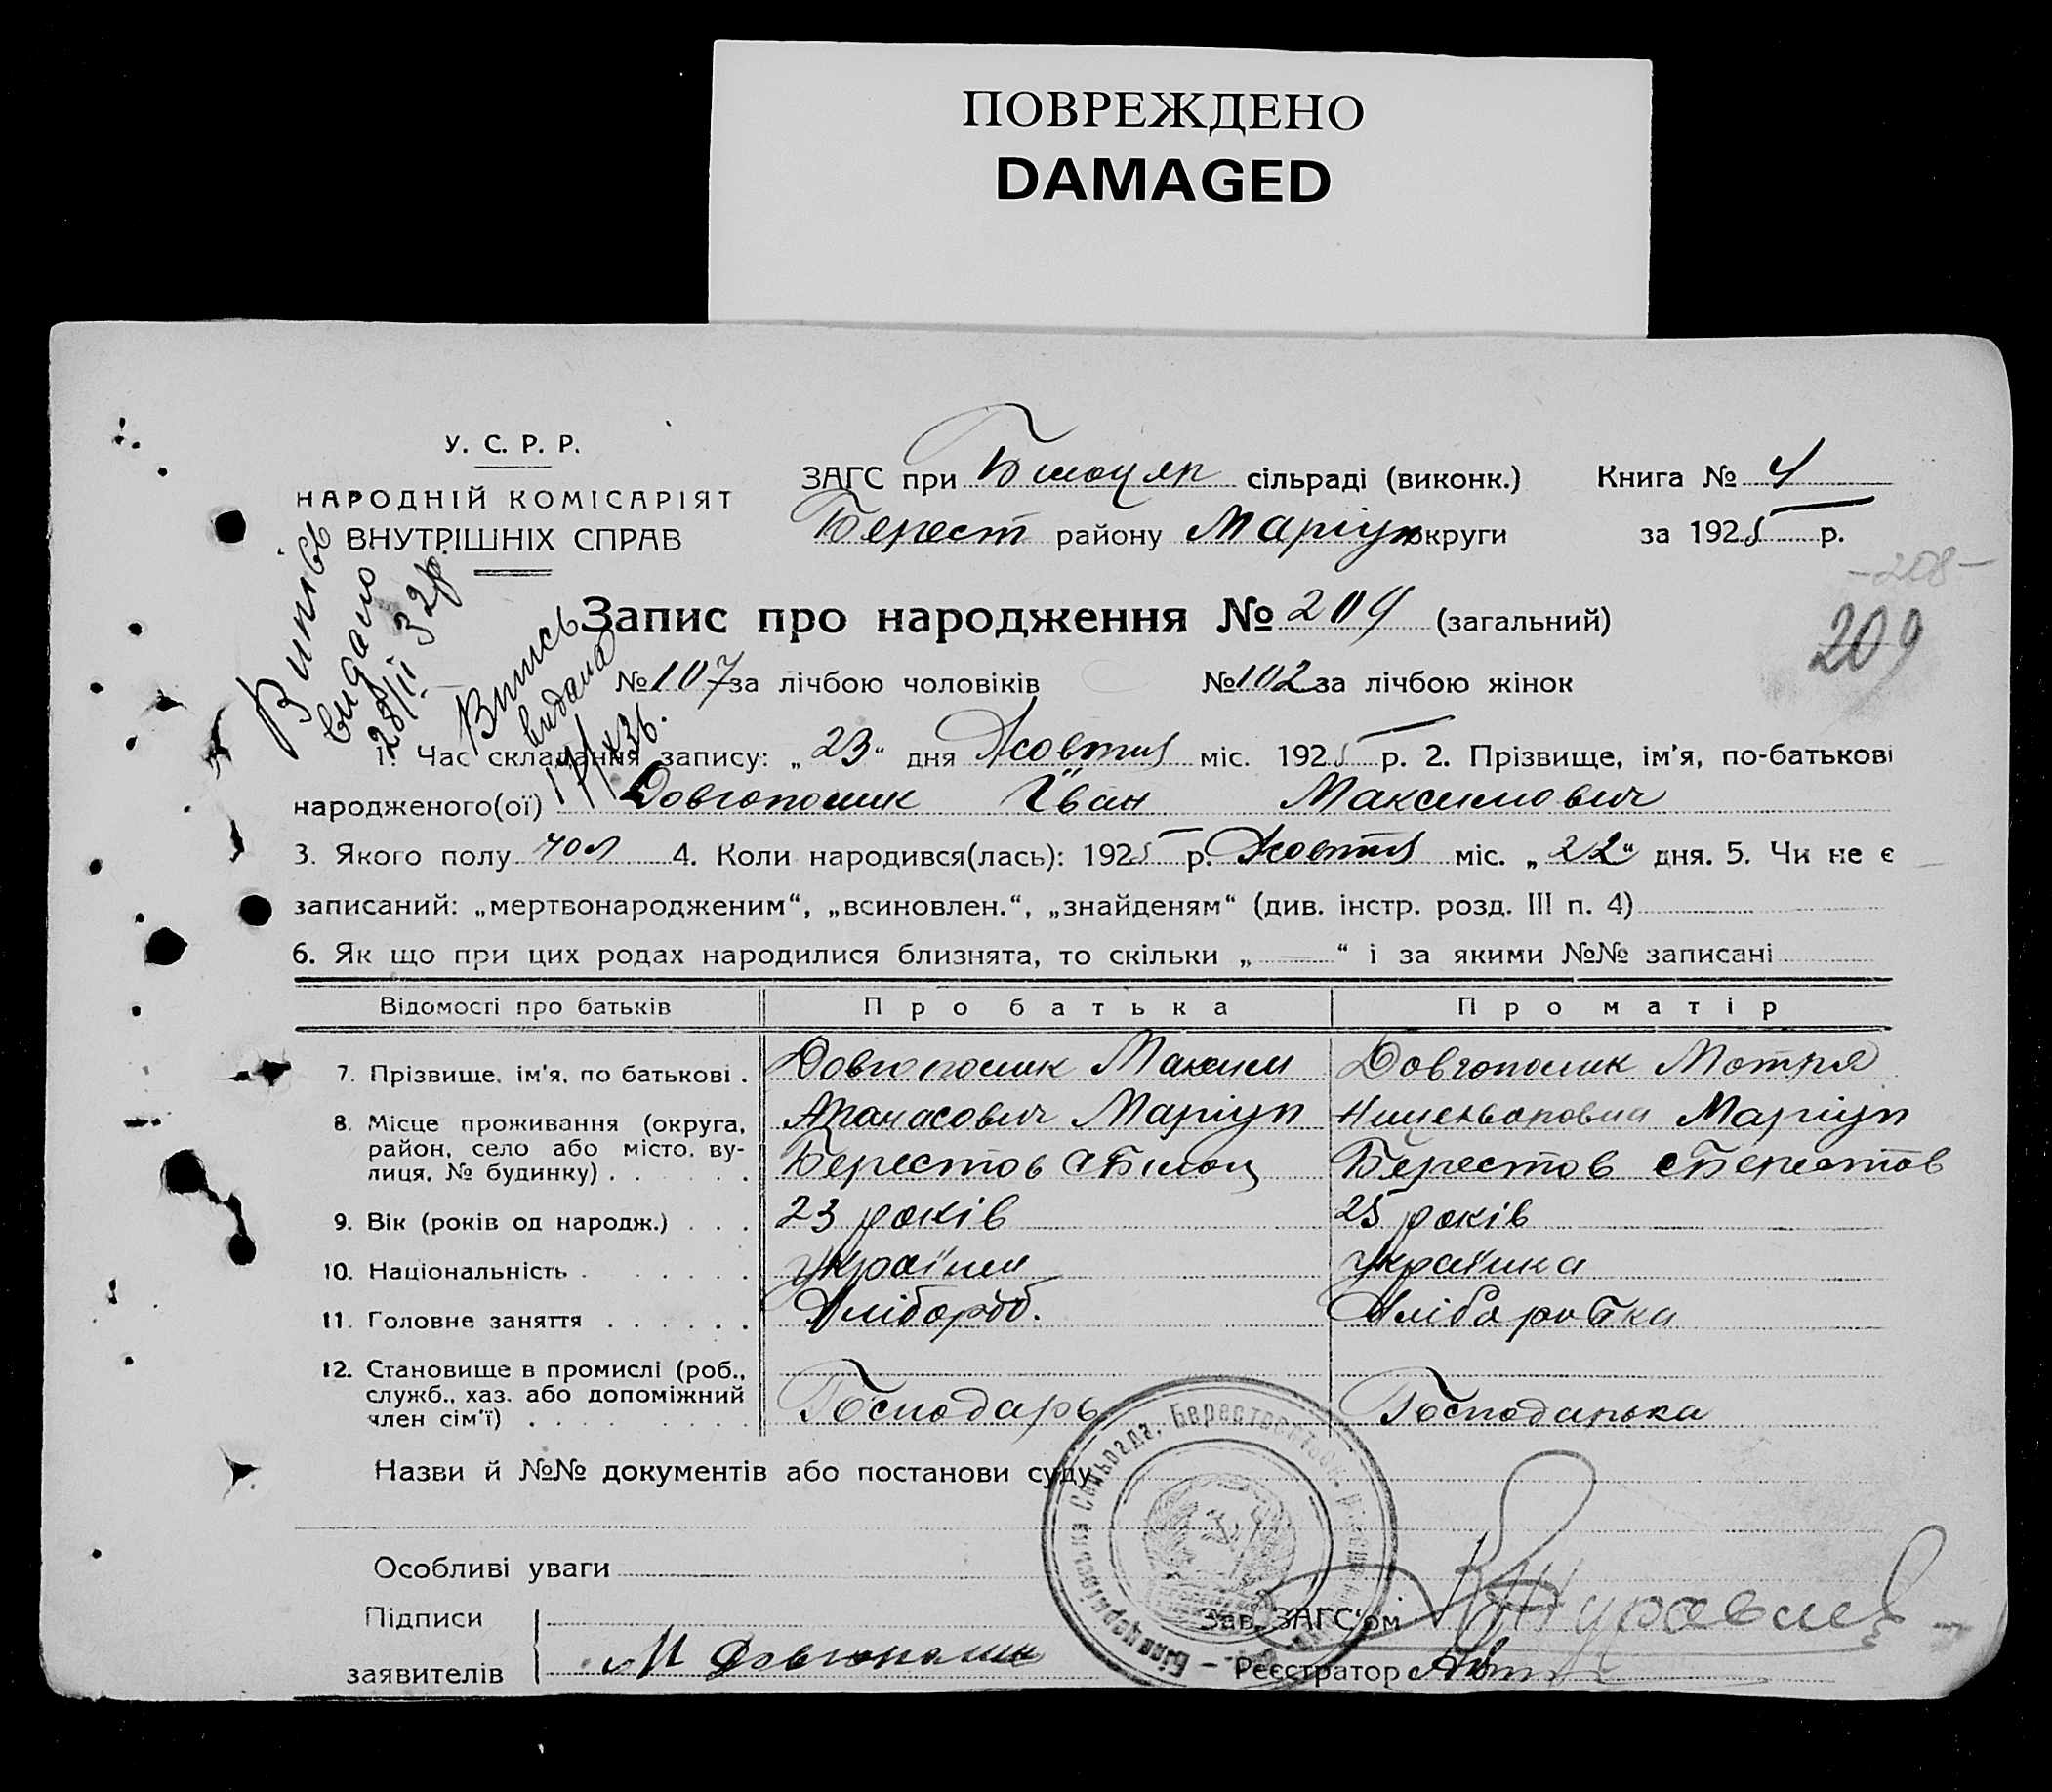 ПОВРЕЖДЕНО
DAMAGED
У. С. Р. Р.
НАРОДНІЙ КОМІСАРІЯТ
ВНУТРІШНІХ СПРАВ
ЗАГС при сільраді (виконк.) Книга № 4
Берест району Маріуп округи за 1925 р.
-208-
209
Випісь видано 28/II 32р.
Випись видана 17/X 36.
Запис про народження № 209 (загальний)
№ 107 за лічбою чоловіків № 102 за лічбою жінок
1. Час складання запису: „23“ дня Жовтня міс. 1925 р. 2. Прізвище, ім'я, по-батькові
народженого(ої) Довгополик Іван Максимович
3. Якого полу чол 4. Коли народився(лась): 1925 р. Жовтня міс. „22“ дня. 5. Чи не є
записаний: „мертвонародженим“, „всиновлен.“, „знайденям“ (див. інстр. розд. III п. 4)
6. Як що при цих родах народилися близнята, то скільки „—“ і за якими №№ записані
Відомості про батьків Про батька Про матір
7. Прізвище, ім'я, по батькові . Довгополик Максим Довгополик Мотря
8. Місце проживання (округа, Апанасович Маріуп Маріуп
район, село або місто, ву-
лиця, № будинку) . . . . . . Берестов с Білоц Берестов с Берестов
9. Вік (років од народж.) . . . 23 років 25 років
10. Національність . . . . . . українец українка
11. Головне заняття . . . . . . Хлібороб. Хліборобка
12. Становище в промислі (роб.,
служб., хаз. або допоміжний
член сім'ї) . . . . . . . . Господарь Господарька
Назви й №№ документів або постанови суду
Особливі уваги
Підписи Зав. ЗАГС'ом Журавлев
заявителів М Довгополик Реєстратор
Білоцерківська Сільрада, Берестов